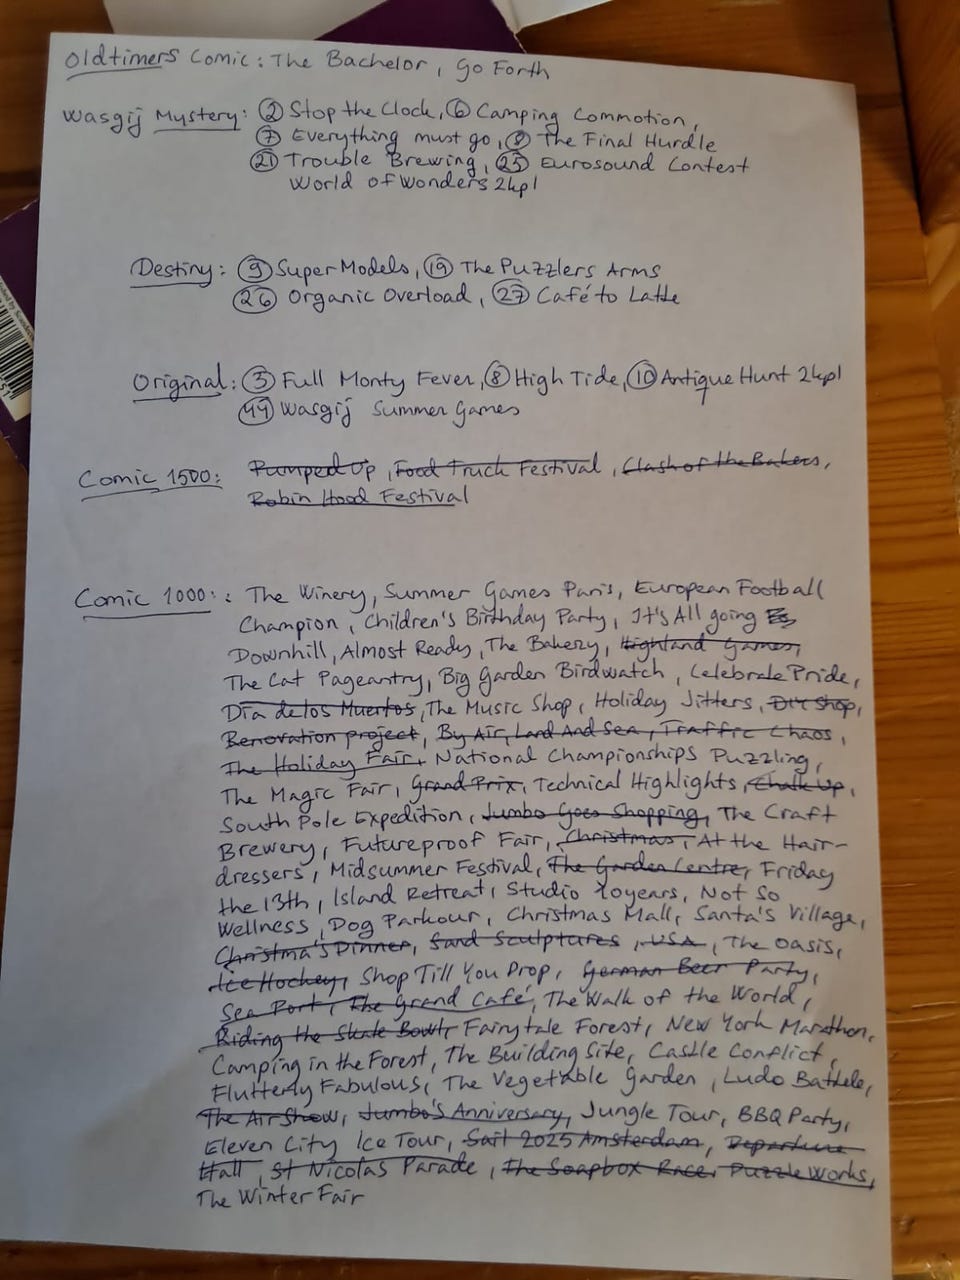 Oldtimers Comic: The Bachelor, Go Forth
Wasgij Mystery: ② Stop the Clock, ⑥ Camping Commotion,
⑦ Everything must go, ⑧ The Final Hurdle
㉑ Trouble Brewing, ㉕ Eurosound Contest
World of Wonders 2kpl
Destiny: ⑨ Super Models, ⑲ The Puzzlers Arms
㉖ Organic Overload, ㉗ Café to Latte
Original: ③ Full Monty Fever, ⑧ High Tide, ⑩ Antique Hunt 2kpl
㊹ Wasgij Summer Games
Comic 1500: Pumped Up, Food Truck Festival, Clash of the Bakers,
Robin Hood Festival
Comic 1000: : The Winery, Summer Games Paris, European Football
Champion, Children's Birthday Party, It's All going
Downhill, Almost Ready, The Bakery, Highland Games,
The Cat Pageantry, Big Garden Birdwatch, Celebrate Pride,
Día de los Muertos, The Music Shop, Holiday Jitters, DIY shop,
Renovation project, By Air, Land And Sea, Traffic Chaos,
The Holiday Fair, National Championships Puzzling,
The Magic Fair, Grand Prix, Technical Highlights, Chalk Up,
South Pole Expedition, Jumbo Goes Shopping, The Craft
Brewery, Futureproof Fair, Christmas, At the Hair-
dressers, Midsummer Festival, The Garden Centre, Friday
the 13th, Island Retreat, Studio 10years, Not So
Wellness, Dog Parkour, Christmas Mall, Santa's Village,
Christma's Dinner, Sand Sculptures, USA, The Oasis,
Ice Hockey, Shop Till You Drop, German Beer Party,
Sea Port, The Grand Café, The Walk of the World,
Riding the Skate Bowl, Fairytale Forest, New York Marathon,
Camping in the Forest, The Building Site, Castle Conflict,
Flutterly Fabulous, The Vegetable Garden, Ludo Battele,
The Air Show, Jumbo's Anniversary, Jungle Tour, BBQ Party,
Eleven City Ice Tour, Sail 2025 Amsterdam, Departure
Hall, St Nicolas Parade, The Soapbox Race, Puzzle Works,
The Winter Fair